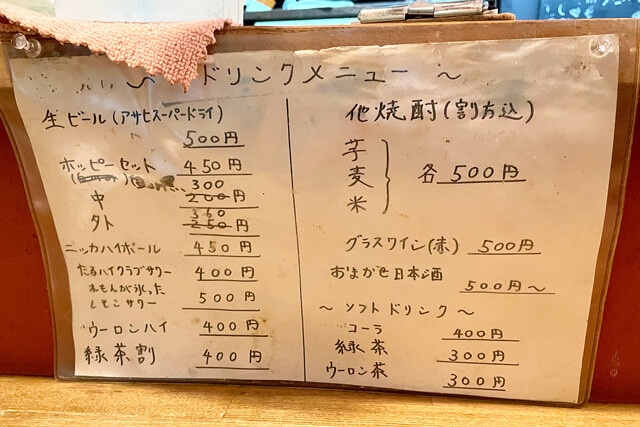 ～ ドリンクメニュー ～
生ビール(アサヒスーパードライ)
500円
ホッピーセット 450円
300
中 200円
360
外 250円
ニッカハイボール 450円
たるハイクラブサワー 400円
れもんが氷った
レモンサワー 500円
ウーロンハイ 400円
緑茶割 400円
他焼酎(割方込)
芋
麦 各 500円
米
グラスワイン(赤) 500円
おまかせ日本酒 500円～
～ ソフトドリンク ～
コーラ 400円
緑茶 300円
ウーロン茶 300円